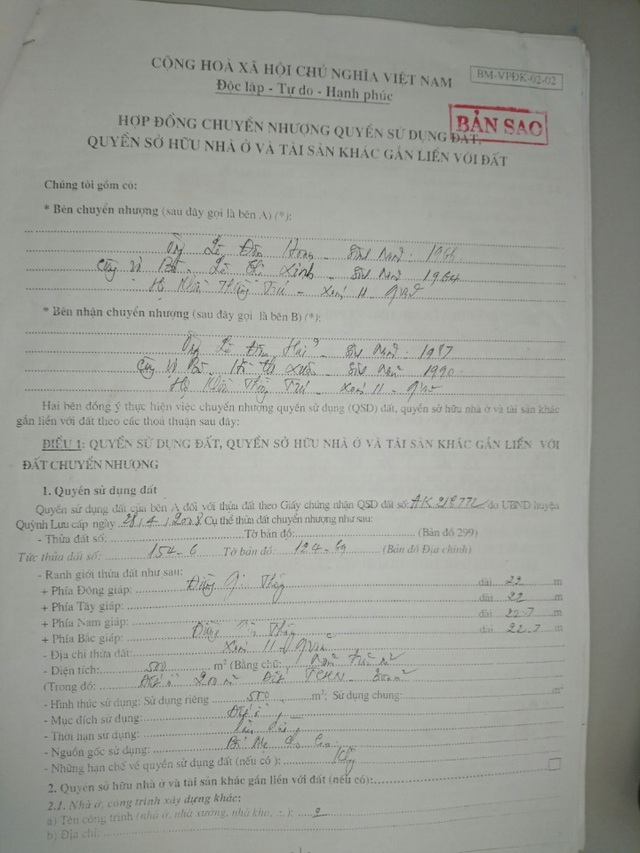 CỘNG HOÀ XÃ HỘI CHỦ NGHĨA VIỆT NAM
BM-VPĐK-02-02
Độc lập - Tự do - Hạnh phúc
HỢP ĐỒNG CHUYỂN NHƯỢNG QUYỀN SỬ DỤNG ĐẤT,
BẢN SAO
QUYỀN SỞ HỮU NHÀ Ở VÀ TÀI SẢN KHÁC GẮN LIỀN VỚI ĐẤT
Chúng tôi gồm có:
* Bên chuyển nhượng (sau đây gọi là bên A) (*):
Ông Lê Đôn - Sinh năm 1966
Cùng vợ Bà - Lê Thị - Sinh năm 1964
Hộ khẩu Thường Trú - Xóm 11 -
* Bên nhận chuyển nhượng (sau đây gọi là bên B) (*):
Ông Lê Đôn Hải - Sinh năm 1987
Cùng vợ Bà - Sinh năm 1990
Hộ khẩu Thường Trú - Xóm 11 -
Hai bên đồng ý thực hiện việc chuyển nhượng quyền sử dụng (QSD) đất, quyền sở hữu nhà ở và tài sản khác
gắn liền với đất theo các thoả thuận sau đây:
ĐIỀU 1: QUYỀN SỬ DỤNG ĐẤT, QUYỀN SỞ HỮU NHÀ Ở VÀ TÀI SẢN KHÁC GẮN LIỀN VỚI
ĐẤT CHUYỂN NHƯỢNG
1. Quyền sử dụng đất
Quyền sử dụng đất của bên A đối với thửa đất theo Giấy chứng nhận QSD đất số: AK do UBND huyện
Quỳnh Lưu cấp ngày 28/4/2008 Cụ thể thửa đất chuyển nhượng như sau:
- Thửa đất số: Tờ bản đồ: (Bản đồ 299)
Tức thửa đất số: 154-6 Tờ bản đồ: 124-69 (Bản đồ Địa chính)
- Ranh giới thửa đất như sau:
+ Phía Đông giáp: dài 22 m
+ Phía Tây giáp: dài 22 m
+ Phía Nam giáp: dài 22.7 m
+ Phía Bắc giáp: dài 22.7 m
- Địa chỉ thửa đất: Xóm 11 -
- Diện tích: 500 m² (Bằng chữ: Năm trăm m²
(Trong đó: Đất ở 200 m² Đất 300m²
- Hình thức sử dụng: Sử dụng riêng 500 m²; Sử dụng chung: m²
- Mục đích sử dụng: Đất ở
- Thời hạn sử dụng: Lâu dài
- Nguồn gốc sử dụng: Bố Mẹ Cho Con
- Những hạn chế về quyền sử dụng đất (nếu có): Không
2. Quyền sở hữu nhà ở và tài sản khác gắn liền với đất (nếu có):
2.1. Nhà ở, công trình xây dựng khác:
a) Tên công trình (nhà ở, nhà xưởng, nhà kho, ...):
b) Địa chỉ: